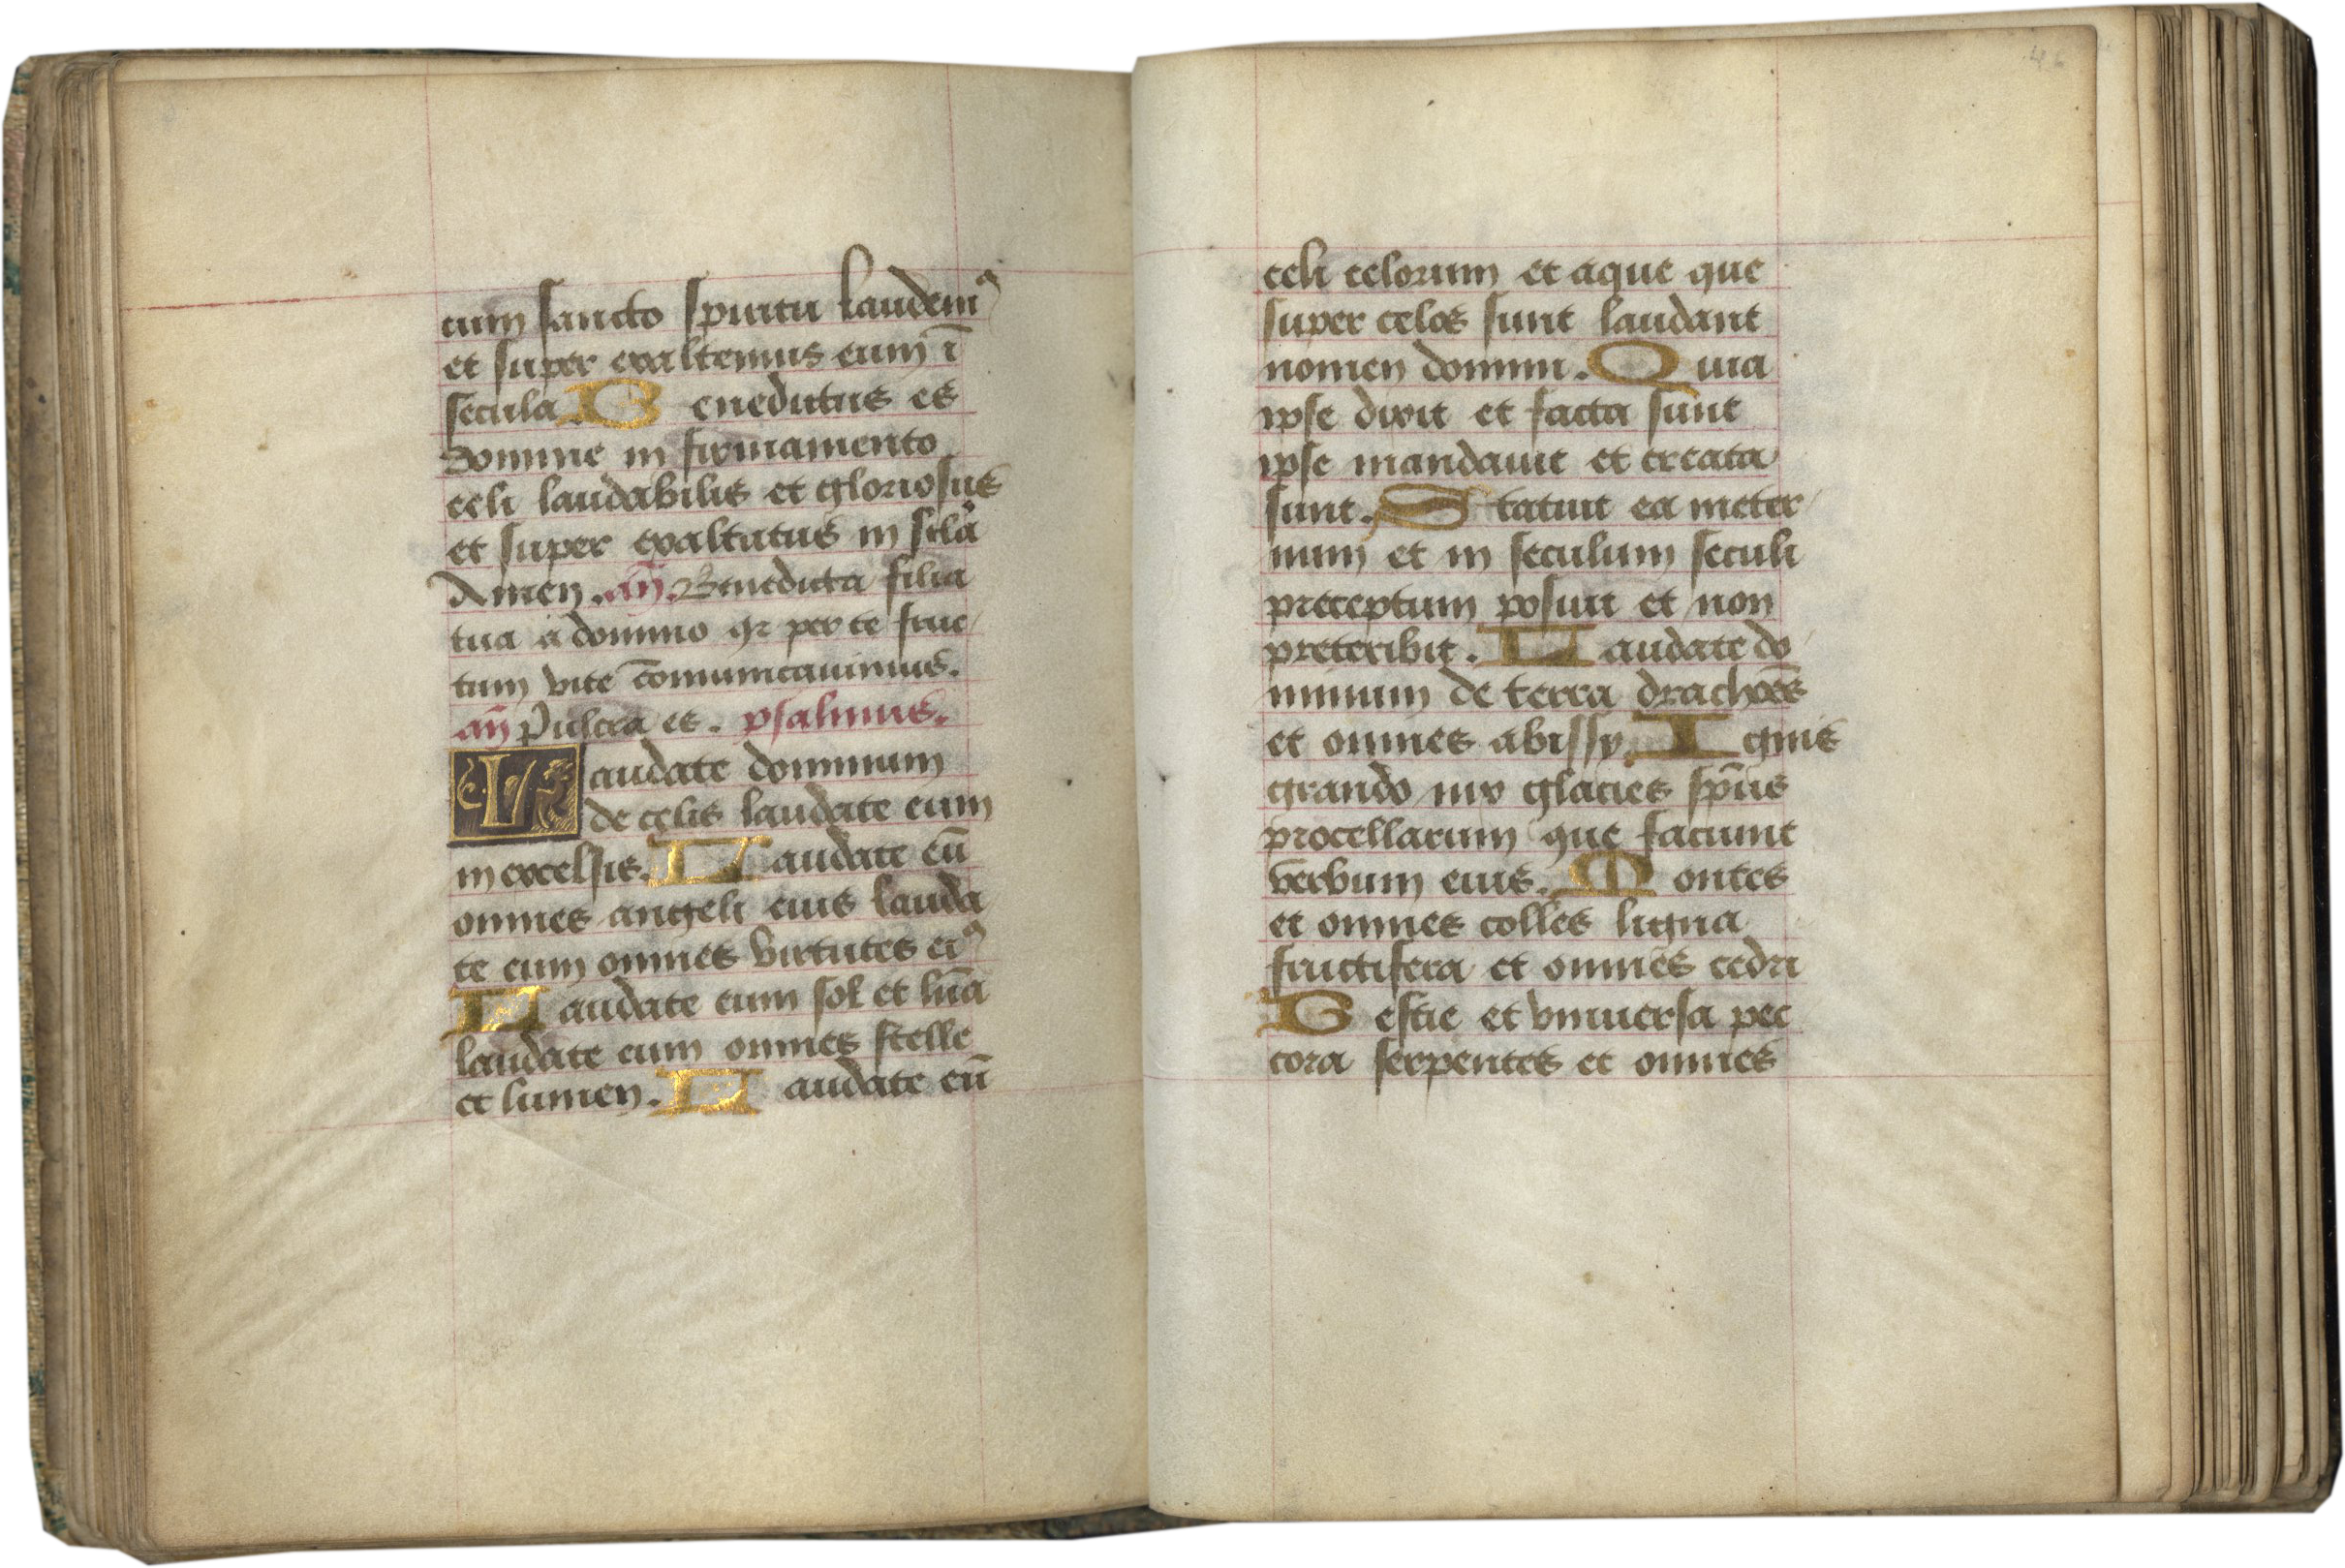 cum sancto spiritu laudem⁹
et super exaltemus eum ī
secula. Benedictus es
domine in firmamento
celi laudabilis et gloriosus
et super exaltatus in scla
Amen. an̄. Benedicta filia
tua a domino qr per te fruc
tum vite cōmunicauimus.
an̄ Pulcra es. psalmus.
Laudate dominum
de celis laudate eum
in excelsis. Laudate eū
omnes angeli eius lauda
te eum omnes virtutes ei⁹
Laudate eum sol et lūa
laudate eum omnes stelle
et lumen. Laudate eū
46
celi celorum et aque que
super celos sunt laudant
nomen domini. Quia
ipse dixit et facta sunt
ipse mandauit et creata
sunt. Statuit ea in eter
num et in seculum seculi
preceptum posuit et non
preteribit. Laudate do
minum de terra drachoēs
et omnes abissy. Ignis
grando nix glacies sp̄us
procellarum que faciunt
verbum eius. Montes
et omnes colles ligna
fructifera et omnes cedri
Bestie et vniuersa pec
cora serpentes et omnes